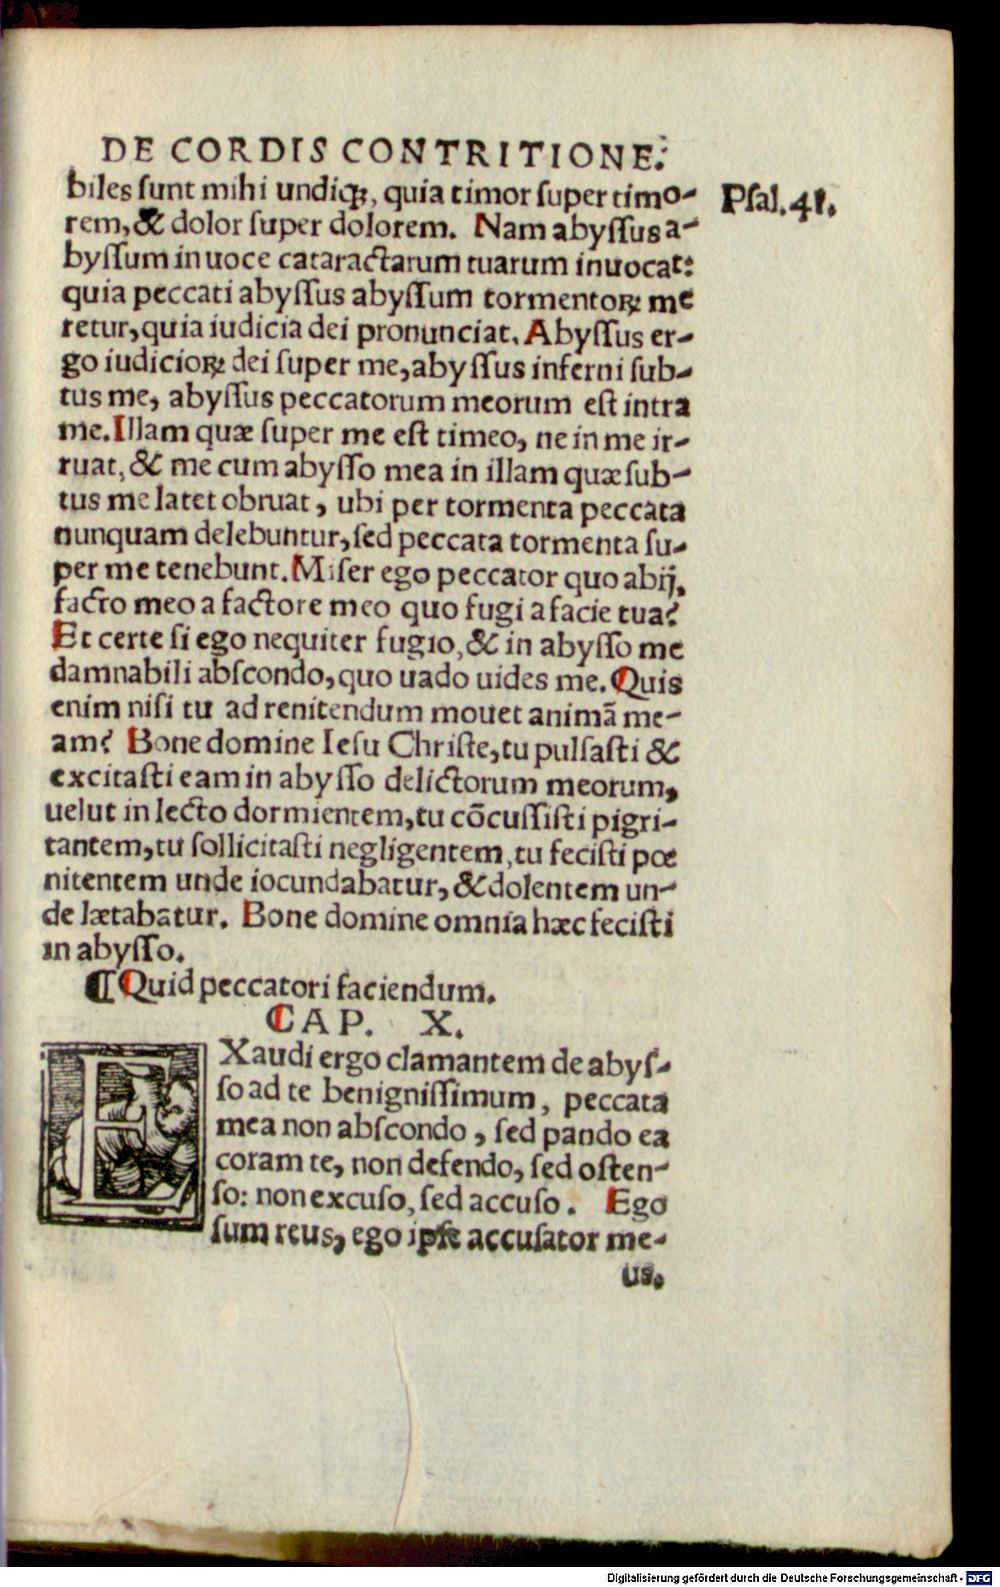 DE CORDIS CONTRITIONE.
biles sunt mihi undiqꝫ, quia timor super timo-
Psal.41.
rem, & dolor super dolorem. Nam abyssus a-
byssum in uoce cataractarum tuarum inuocat:
quia peccati abyssus abyssum tormentoꝝ me
retur, quia iudicia dei pronunciat. Abyssus er-
go iudicioꝝ dei super me, abyssus inferni sub-
tus me, abyssus peccatorum meorum est intra
me. Illam quæ super me est timeo, ne in me ir-
ruat, & me cum abysso mea in illam quæ sub-
tus me latet obruat, ubi per tormenta peccata
nunquam delebuntur, sed peccata tormenta su-
per me tenebunt. Miser ego peccator quo abij,
facto meo a factore meo quo fugi a facie tua?
Et certe si ego nequiter fugio, & in abysso me
damnabili abscondo, quo uado uides me. Quis
enim nisi tu ad renitendum mouet animã me-
am? Bone domine Iesu Christe, tu pulsasti &
excitasti eam in abysso delictorum meorum,
uelut in lecto dormientem, tu cõcussisti pigri-
tantem, tu sollicitasti negligentem, tu fecisti pœ
nitentem unde iocundabatur, & dolentem un-
de lætabatur. Bone domine omnia hæc fecisti
in abysso.
¶ Quid peccatori faciendum.
CAP. X.
EXaudi ergo clamantem de abys-
so ad te benignissimum, peccata
mea non abscondo, sed pando ea
coram te, non defendo, sed osten-
so: non excuso, sed accuso. Ego
sum reus, ego ipse accusator me-
us.
Digitalisierung gefördert durch die Deutsche Forschungsgemeinschaft - DFG